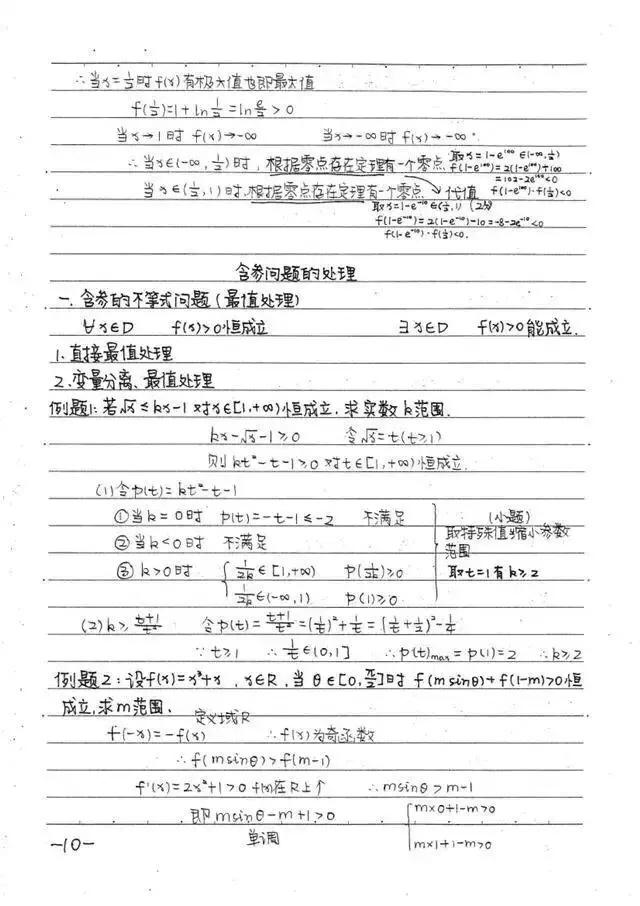 ∴当x=½时f(x)有极大值也即最大值
f(½)=1+ln½=ln e/2>0
当x→1时 f(x)→-∞ 当x→-∞时 f(x)→-∞.
∴当x∈(-∞,½)时,根据零点存在定理有一个零点 取x=1-e¹⁰⁰∈(-∞,½)
f(1-e¹⁰⁰)=2(1-e¹⁰⁰)+100
=102-2e¹⁰⁰<0
当x∈(½,1)时.根据零点存在定理有一个零点 代值 f(1-e¹⁰⁰)·f(½)<0
取x=1-e⁻¹⁰∈(½,1)
f(1-e⁻¹⁰)=2(1-e⁻¹⁰)-10=-8-2e⁻¹⁰<0
f(1-e⁻¹⁰)·f(½)<0.
含参问题的处理
一.含参的不等式问题(最值处理)
∀x∈D f(x)>0恒成立 ∃x∈D f(x)>0能成立.
1.直接最值处理
2.变量分离、最值处理
例题1:若√x≤kx-1对x∈[1,+∞)恒成立,求实数k范围.
kx-√x-1≥0 令√x=t(t≥1)
则kt²-t-1≥0对t∈[1,+∞)恒成立.
(1)令p(t)=kt²-t-1
①当k=0时 p(t)=-t-1≤-2 不满足 (小题)
取特殊值缩小参数
②当k<0时 不满足 范围
③k>0时 1/2k∈[1,+∞) p(1/2k)≥0 取t=1有k≥2
1/2k∈(-∞,1) p(1)≥0
(2)k≥(t+1)/t² 令p(t)=(t+1)/t²=(1/t)²+1/t=(1/t+½)²-¼
∵t≥1 ∴1/t∈(0,1] ∴p(t)max=p(1)=2 ∴k≥2
例题2:设f(x)=x³+x,x∈R,当θ∈[0,π/2]时 f(msinθ)+f(1-m)>0恒
成立,求m范围、
定义域R
f(-x)=-f(x) ∴f(x)为奇函数
∴f(msinθ)>f(m-1)
f'(x)=2x²+1>0 f(x)在R上↑ ∴msinθ>m-1
即msinθ-m+1>0 m×0+1-m>0
单调 m×1+1-m>0
-10-